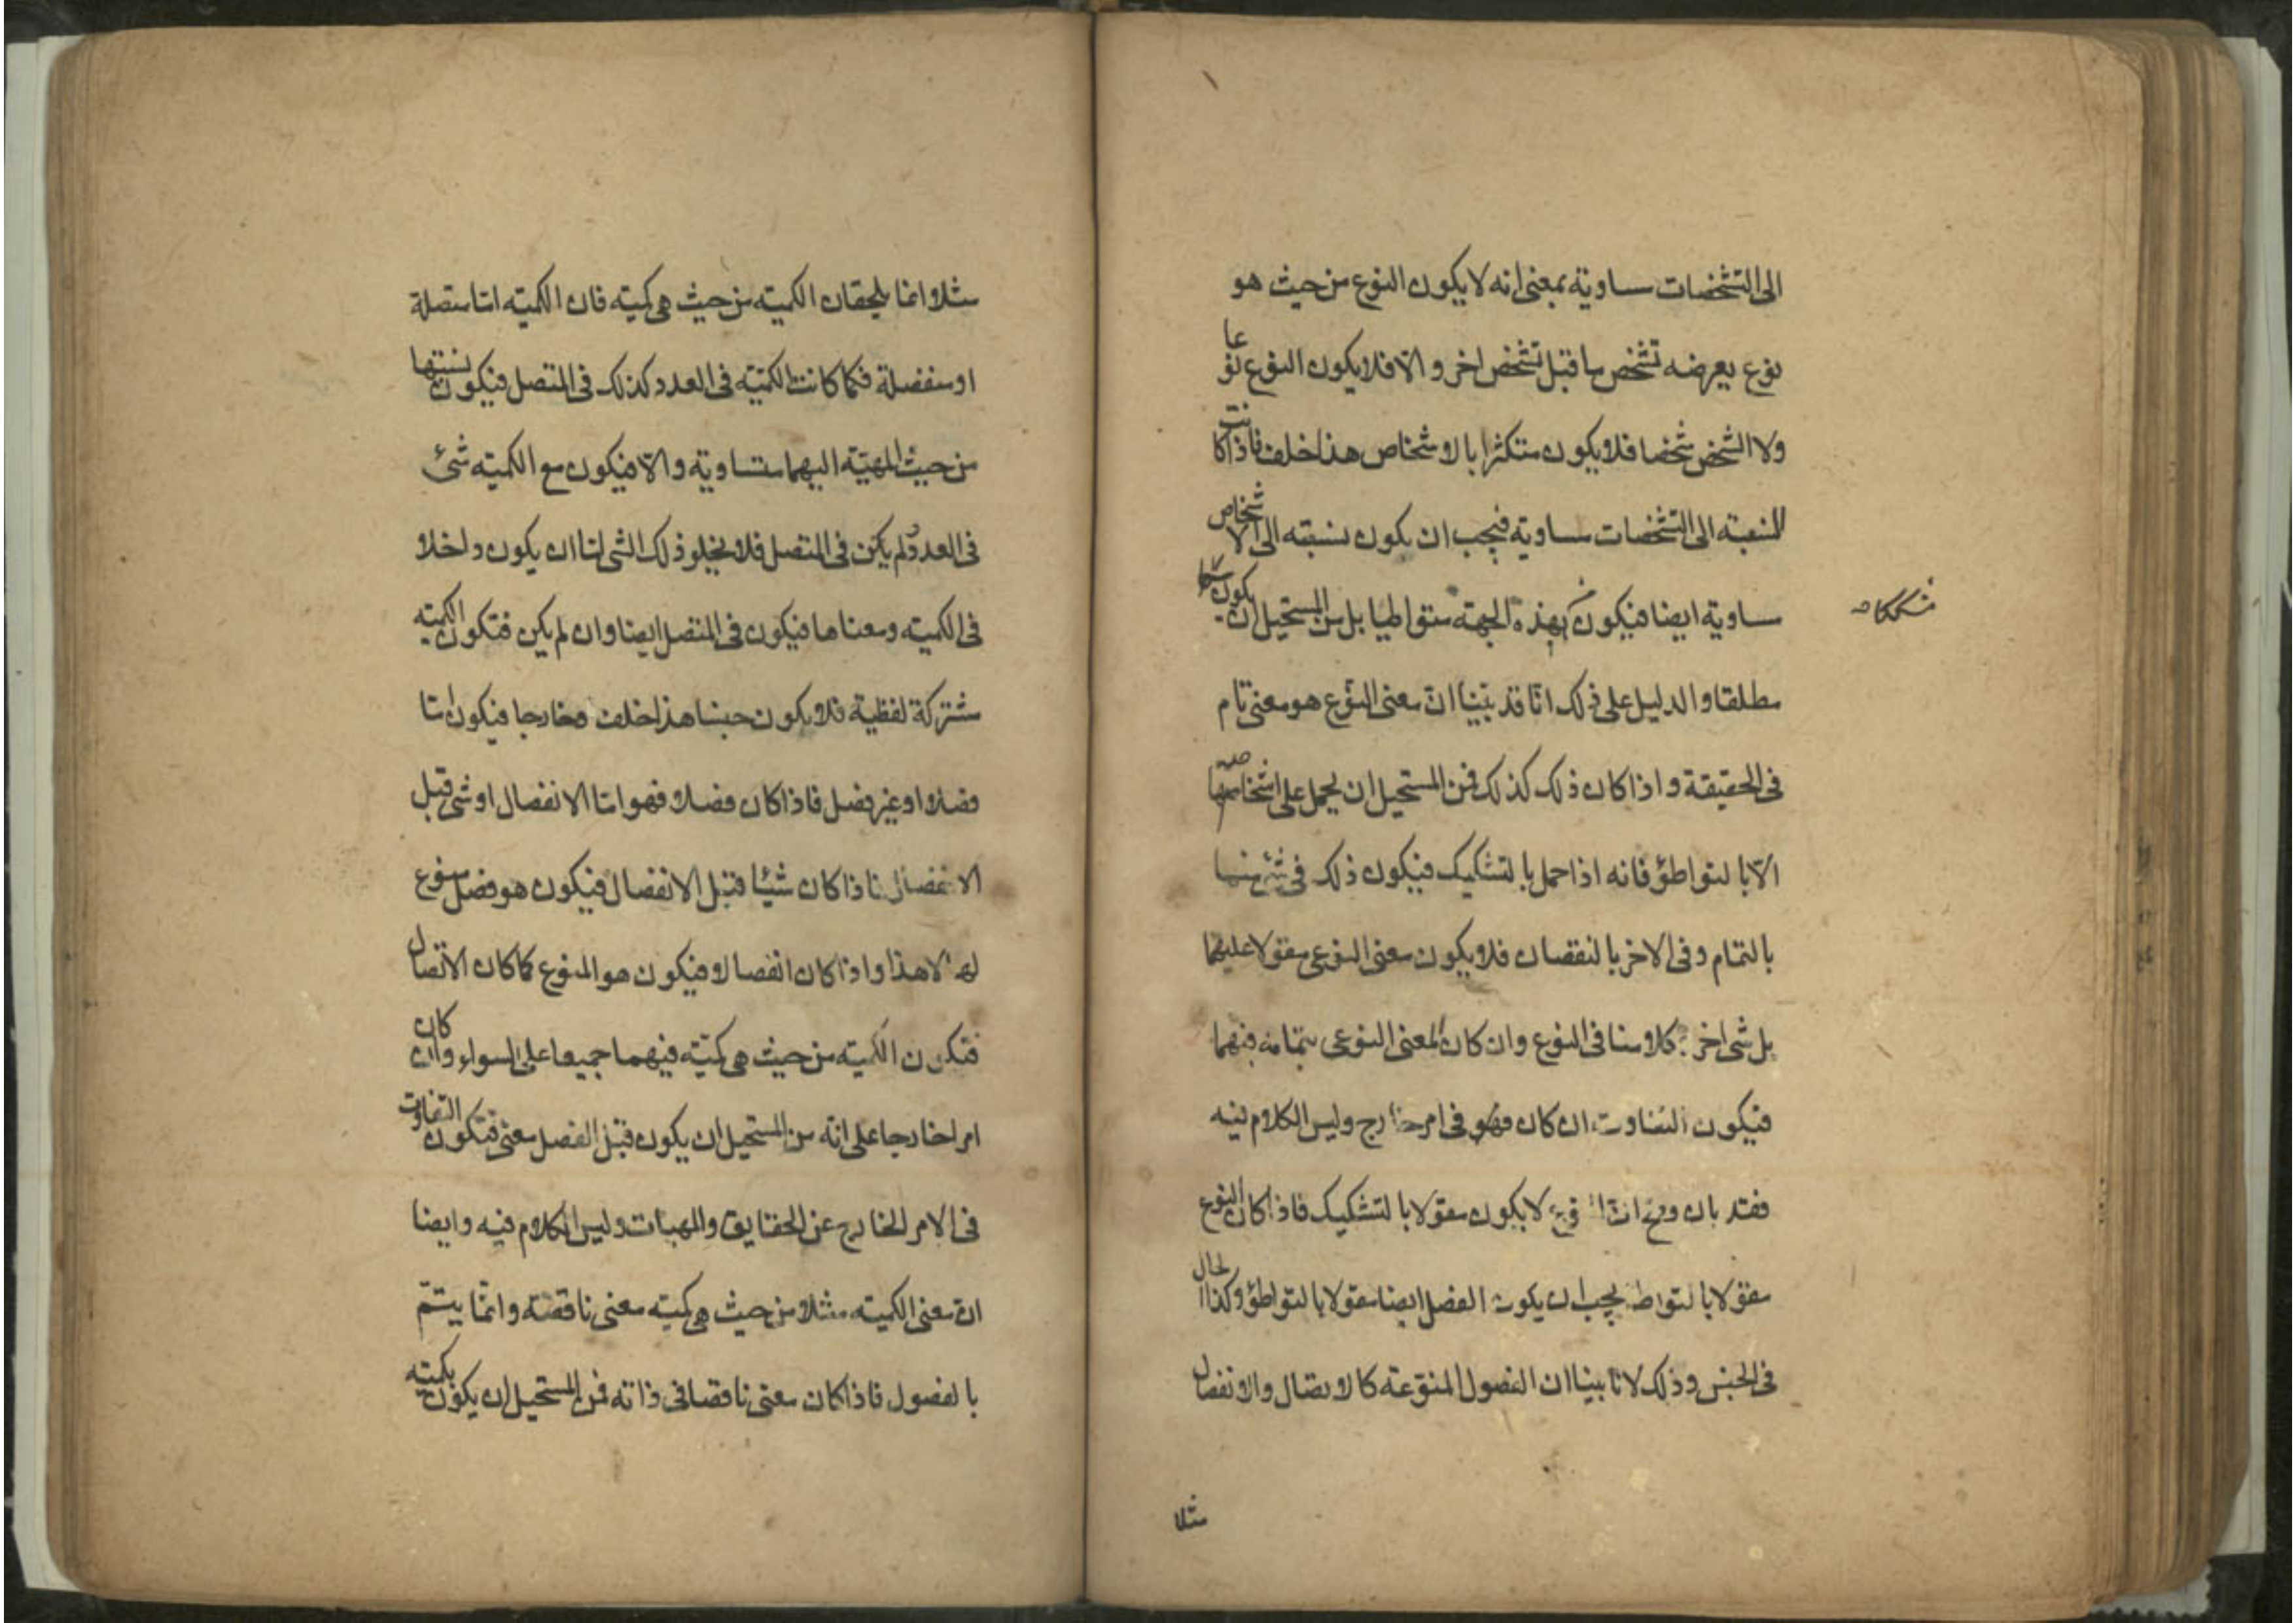 الى التشخصات مساوية بمعنى انه لا يكون النوع من حيث هو
نوع يعرضه تشخص ما قبل تشخص اخر والّا فلا يكون النوع نوعا
ولا الشخص شخصا فلا يكون متكثرا بالاشخاص هذا خلف فاذا كانت
النسبة الى التشخصات مساوية فيجب ان يكون نسبته الى الاشخاص
مساوية ايضا فيكون بهذه الجهة متواطيا بل من المستحيل ان يكون
مشككا
مطلقا والدليل على ذلك انّا قد بيّنا انّ معنى النوع هو معنى تام
فى الحقيقة واذا كان ذلك كذلك فمن المستحيل ان يحمل على اشخاصها
الّا بالتواطؤ فانه اذا حمل بالتشكيك فيكون ذلك فى شئ منها
بالتمام وفى الاخر بالنقصان فلا يكون معنى النوعى مقولا عليهما
بل شى اخر كلامنا فى النوع وان كان المعنى النوعى بتمامه فيهما
فيكون التفاوت ان كان فهو فى امر خارج وليس الكلام فيه
فقد بان وضح انّ النوع لا يكون مقولا بالتشكيك فاذا كان النوع
مقولا بالتواطؤ يجب ان يكون الفصل ايضا مقولا بالتواطؤ وكذا الحال
فى الجنس وذلك لانا بينا ان الفصول المنوّعة كالاتصال والانفصال
مثلا
مثلا انما يلحقان الكميته من حيث هى كميته فان الكميته امّا متصلة
او منفصلة فكما كانت الكميّته فى العدد كذلك فى المتصل فيكون نسبتها
من حيث المهيّة اليهما متساوية والّا فيكون مع الكميته شئ
فى العدد ولم يكن فى المتصل فلا يخلو ذلك الشى امّا ان يكون داخلا
فى الكميته ومعناها فيكون فى المتصل ايضا وان لم يكن فتكون الكميته
مشتركة لفظية فلا يكون جنسا هذا خلف وخارجا فيكون امّا
فصلا او غير فصل فاذا كان فصلا فهو امّا الانفصال او شى قبل
الانفصال فاذا كان شيئا قبل الانفصال فيكون هو فصل منوع
له لا هذا واذا كان انفصالا فيكون هو المنوع كما كان الاتصال
فتكون الكميته من حيث هى كميّته فيهما جميعا على السواء وان كان
امرا خارجا على انه من المستحيل ان يكون قبل الفصل معنى فتكون التفاوت
فى الامر الخارج عن الحقايق والمهيات وليس الكلام فيه وايضا
انّ معنى الكميته مثلا من حيث هى كميته معنى ناقصة وانّما يتمّ
بالفصول فاذا كان معنى ناقصا فى ذاته فمن المستحيل ان يكون بكميته